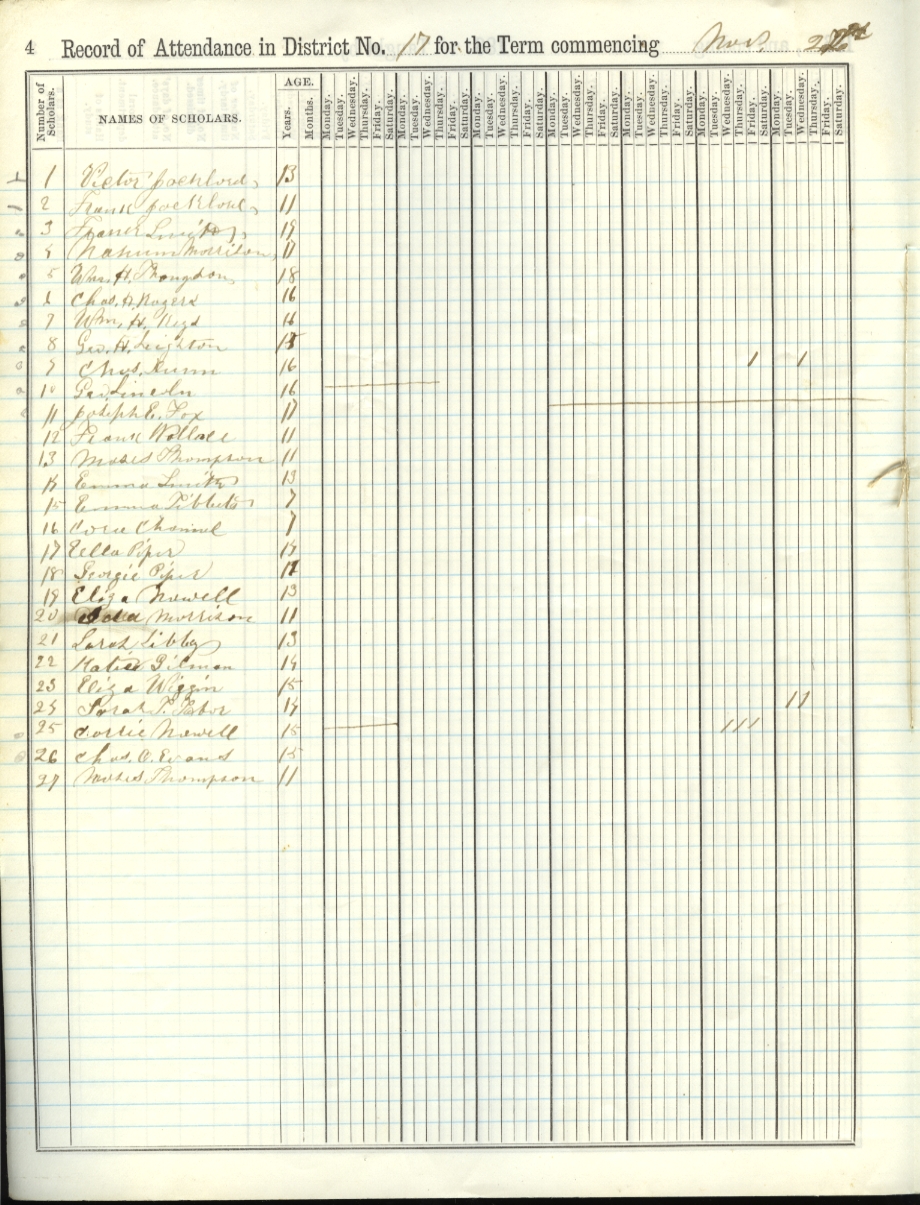 4 Record of Attendance in District No. 17 for the Term commencing Nov.
Number of Scholars. NAMES OF SCHOLARS. AGE. Years. Months. Monday. Tuesday. Wednesday. Thursday. Friday. Saturday. Monday. Tuesday. Wednesday. Thursday. Friday. Saturday. Monday. Tuesday. Wednesday. Thursday. Friday. Saturday. Monday. Tuesday. Wednesday. Thursday. Friday. Saturday. Monday. Tuesday. Wednesday. Thursday. Friday. Saturday. Monday. Tuesday. Wednesday. Thursday. Friday. Saturday. Monday. Tuesday. Wednesday. Thursday. Friday. Saturday.
1 Victor 13
2 Frank 11
3 Frank Smith 19
4 Nahum Morrison, 17
5 Wm. H. 18
6 Chas. H. Rogers 16
7 Wm. H. 16
8 Geo. H. Leighton
9 Chas. Nunn 16
10 Geo. Lincoln 16
11 Joseph E. Fox 17
12 Frank Wallace 11
13 Moses Thompson 11
14 Emma Smith 13
15 Emma Tibbets 7
16 Cora 7
17 Ella Piper 14
18 Georgie Piper
19 Eliza Nowell 13
20 Morrison 11
21 Sarah Libby 13
22 Katie Gilman 14
23 Eliza Wiggin 15
24 Sarah 14
25 Nowell 15
26 Chas. O. Evans 15
27 Moses Thompson 11